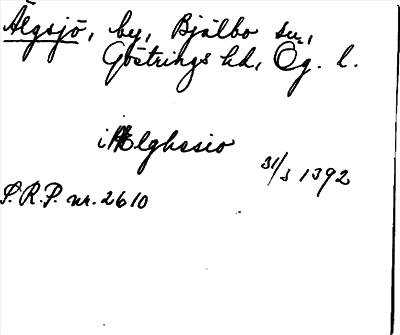 Älgsjö, by, Bjälbo sn,
Göstrings hd, Ög. l.
i Ælghssio
31/3 1392
S.R.P. nr. 2610